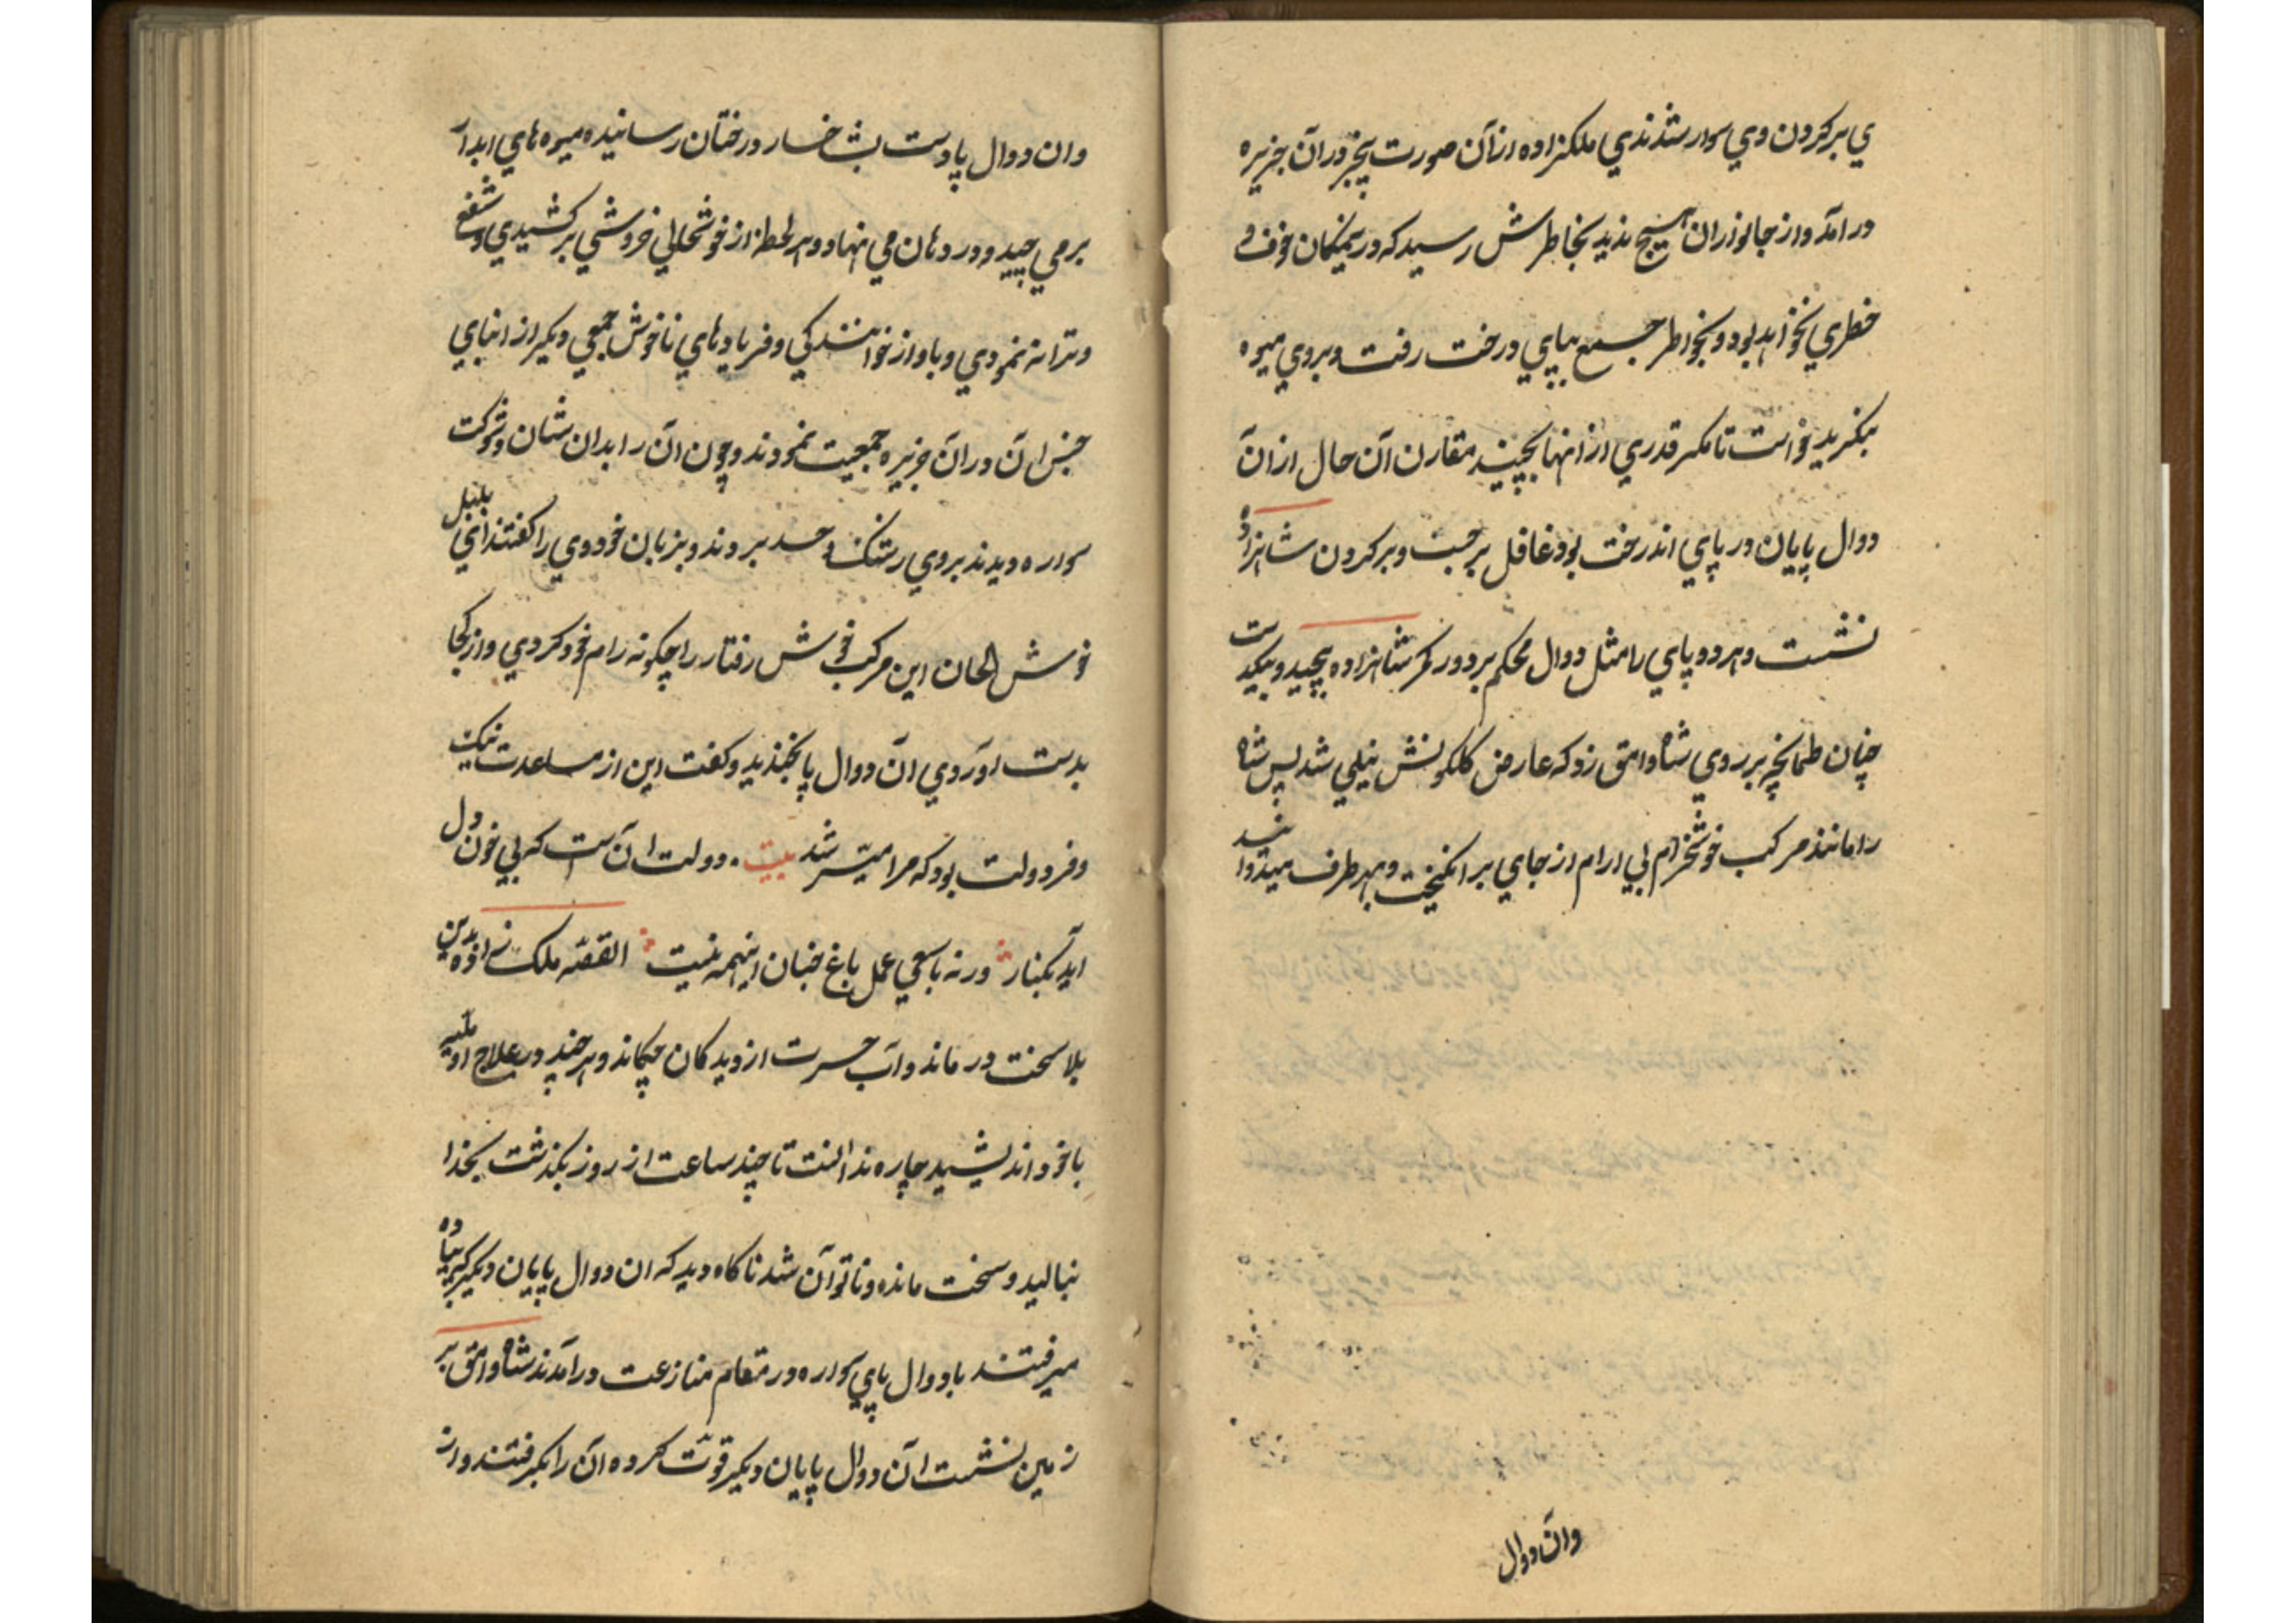 ي بر کردن وي سوار شدندي ملکزاده ازان صورت بيخبر دران جزيره
در امد و از جانوران هيچ نديد بخاطرش رسيد که در ينمکان خوف و
خطري نخواهد بود و بخواطر جمع بپاي درخت رفت و بروي ميوه
بنکريد خواست تا مکر قدري از انها بچيند مقارن آن حال ازان
دوال پايان در پاي اندرخت بود غافل برجست و بر کردن شاهزاده
نشست و هر دو پاي را مثل دوال محکم بر دور کمر شاهزاده پيچيد و بيکدست
چنان طمانچه بر روي شاه وامق زد که عارض کلکونش نيلي شد پس شاه
را مانند مرکب خوشخرام بي ارام از جاي بر انکيخت و بهر طرف ميدواند
وان دوال
وان دوال پا دست بشاخسار درختان رسانيده ميوه هاي ابدار
بر مي چيد و در دهان مي نهاد و هر لحظه از خوشحالي خروشي بر کشيدي و شغفي
و ترانه نمودي و باواز خوانندکي و فريادهاي ناخوش جمعي ديکر از ابناي
جنس ان دران جزيره جمعيت نمودند و چون ان را بدان شان و شوکت
سواره ديدند بروي رشک و حسد بردند و بزبان خود وي را کفتند اي بلبل
خوش الحان اين مرکب خوش رفتار را چکونه رام خود کردي و از کجا
بدست اوردي ان دوال پا بخنديد و کفت اين از مساعدت نيک
و فر دولت بود که مرا ميسّر شد بيت دولت ان است که بي خون دل
ايد بکنار ورنه با سعي عمل باغ جنان اينهمه نيست القصّه ملک زاده بدين
بلا سخت در ماند و اب حسرت از ديدکان چکاند و هر چند در علاج او
باخود انديشيد چاره ندانست تا چند ساعت از روز بکذشت بخدا
بناليد و سخت مانده و ناتوان شد ناکاه ديد که ان دوال پايان ديکر که پياده
ميرفتند با دوال پاي سواره در مقام منازعت در امدند شاه وامق بر
زمين نشست ان دوال پايان ديکر قوّت کرده ان را بکرفتند و از